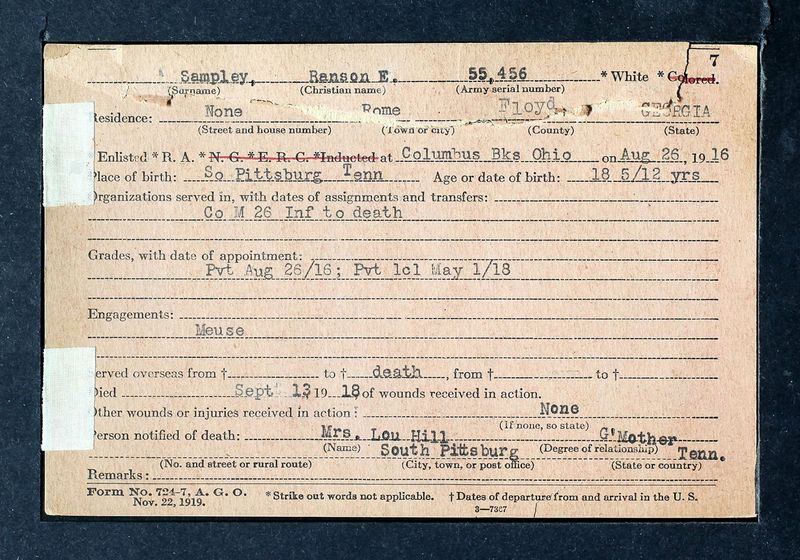 7
Sampley, Ranson E. 55,456 * White * Colored.
(Surname) (Christian name) (Army serial number)
Residence: None Rome Floyd, GEORGIA
(Street and house number) (Town or city) (County) (State)
Enlisted * R. A. * N. G. * E. R. C. * Inducted at Columbus Bks Ohio on Aug 26, 1916
Place of birth: So Pittsburg Tenn Age or date of birth: 18 5/12 yrs
Organizations served in, with dates of assignments and transfers:
Co M 26 Inf to death
Grades, with date of appointment:
Pvt Aug 26/16; Pvt lcl May 1/18
Engagements:
Meuse
erved overseas from † to † death, from † to †
Died Sept 13 19 18 of wounds received in action.
Other wounds or injuries received in action: None
(If none, so state)
Person notified of death: Mrs. Lou Hill G'Mother
(Name) (Degree of relationship)
South Pittsburg Tenn.
(No. and street or rural route) (City, town, or post office) (State or country)
Remarks:
Form No. 724-7, A. G. O. * Strike out words not applicable. † Dates of departure from and arrival in the U. S.
Nov. 22, 1919. 3—7367